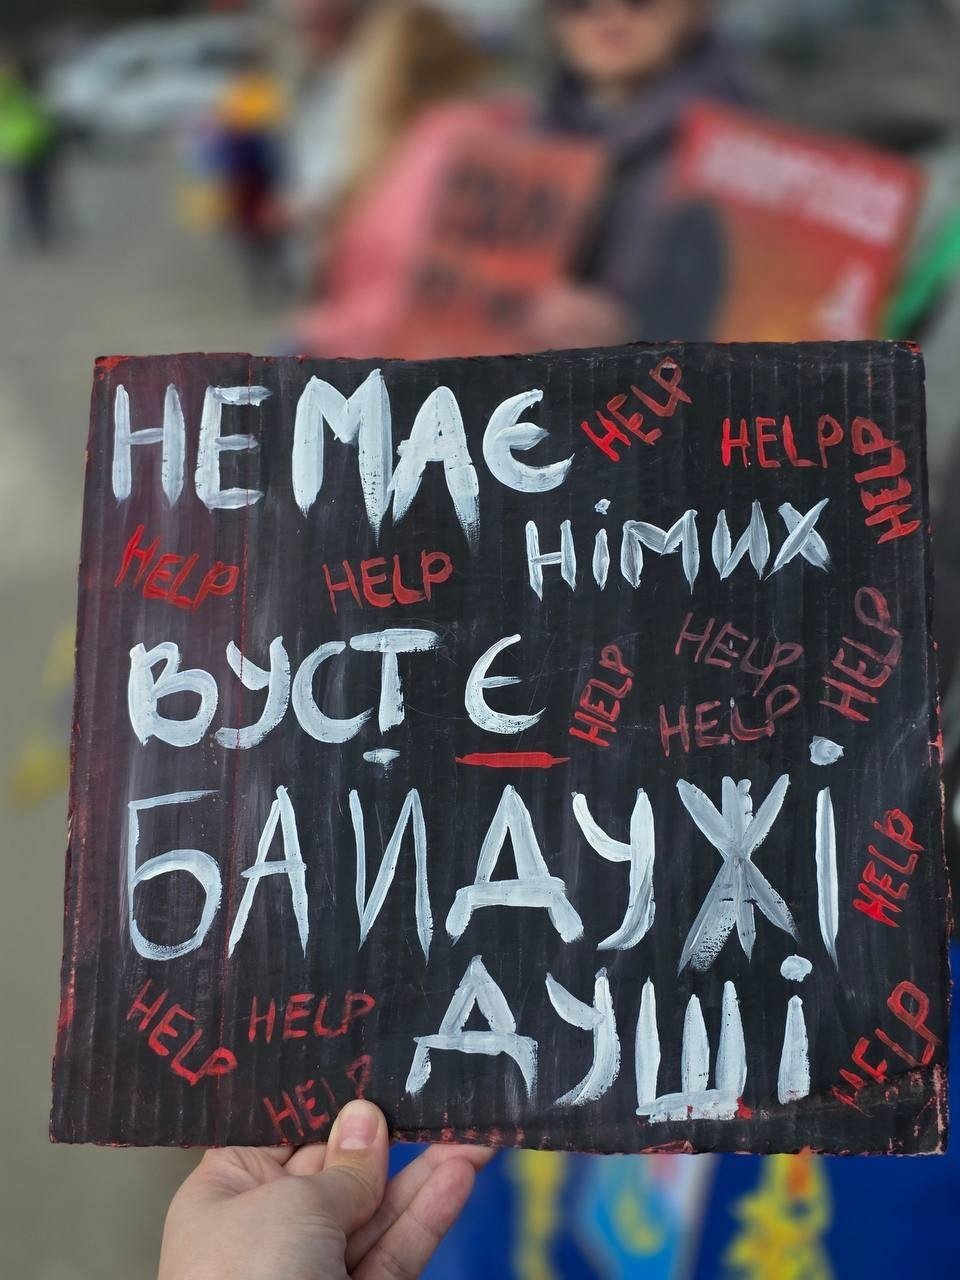 НЕМАЄ
HELP
HELP
HELP
німих
HELP
HELP
ВУСТ Є
HELP
HELP
HELP
HELP
БАЙДУЖІ
HELP
ДУШІ
HELP
HELP
HELP
HELP